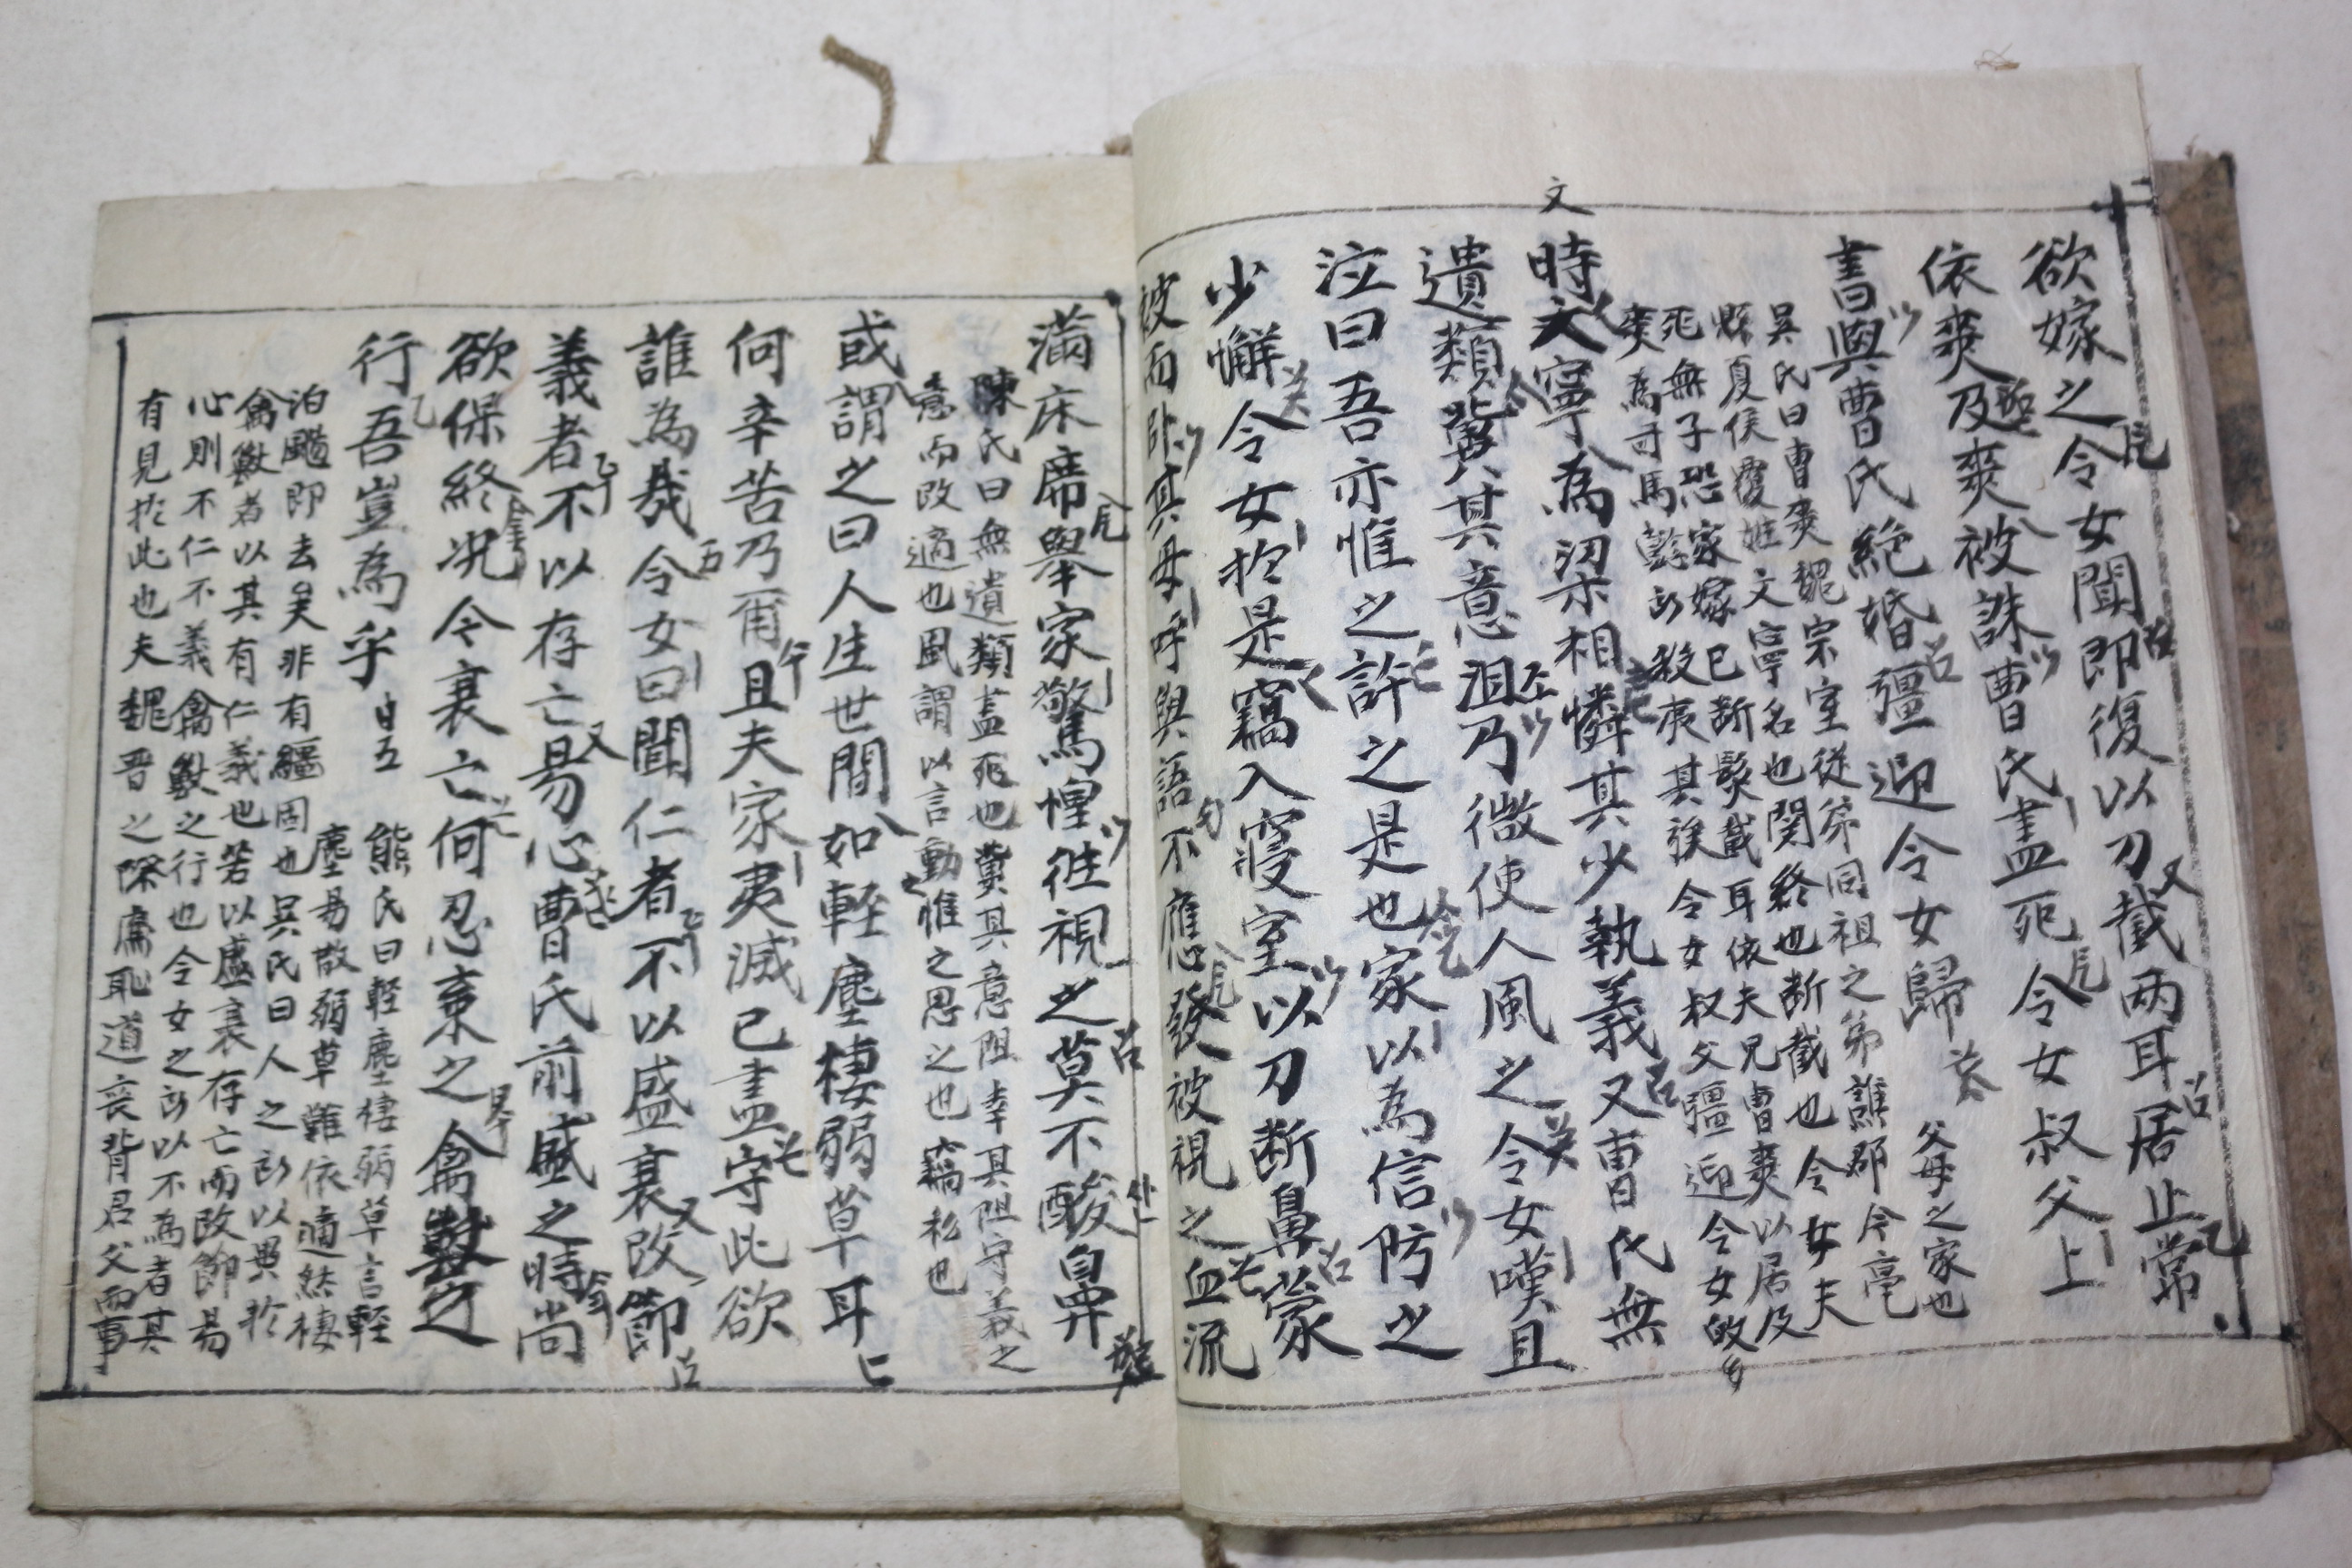 欲嫁之令女聞即復以刀截兩耳居止常
依爽及爽被誅曹氏盡死令女叔父上
書與曹氏絶婚彊迎令女歸 父母之家也
吳氏曰曹爽魏宗室從弟同祖之弟譙郡今亳
縣夏侯覆姓文寧名也関終也断截也令女夫
死無子恐家嫁已断髮截耳依夫兄曹爽以居及
爽為司馬懿所殺夷其族令女叔父彊迎令女
文
時文寧為梁相憐其少執義又曹氏無
遺類冀其意沮乃微使人風之令女嘆且
泣曰吾亦惟之許之是也家以為信防之
少懈令女於是竊入寢室以刀断鼻蒙
被而卧其母呼與語不應發被視之血流
滿床席舉家驚惶徃視之莫不酸鼻
陳氏曰無遺類盡死也冀其意阻幸其阻守義之
意而改適也風謂以言動之惟之思之也竊私也
或謂之曰人生世間如輕塵棲弱草耳
何辛苦乃爾且夫家夷滅已盡守此欲
誰為哉令女曰聞仁者不以盛衰改節
義者不以存亡易心曹氏前盛之時尚
欲保終况今衰亡何忍棄之禽獸之
行吾豈為乎
熊氏曰輕塵棲弱草言輕
塵易散弱草難依適然棲
泊颺即去矣非有繮固也吳氏曰人之所以異於
禽獸者以其有仁義也若以盛衰存亡而改節易
心則不仁不義禽獸之行也令女之所以不為者其
有見於此也夫魏晋之際廉恥道喪背君父而事